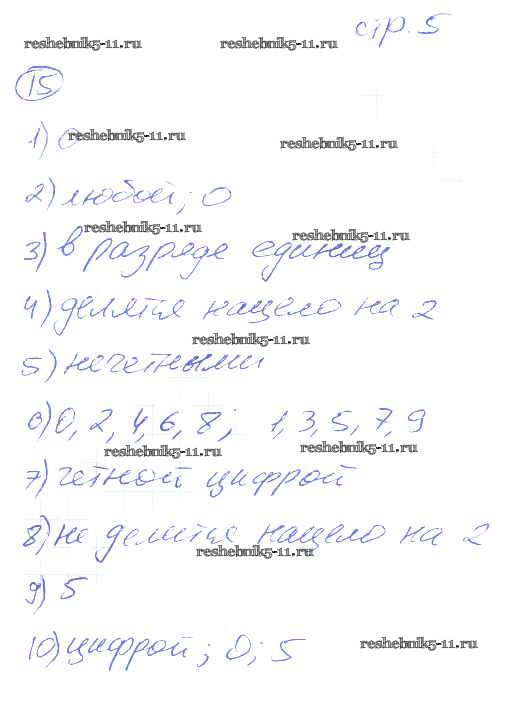 стр. 5
reshebnik5-11.ru reshebnik5-11.ru
15
1) 0 reshebnik5-11.ru
reshebnik5-11.ru
2) любой; 0
reshebnik5-11.ru
reshebnik5-11.ru
3) в разряде единиц
4) делятся нацело на 2
reshebnik5-11.ru
5) нечетными
6) 0, 2, 4, 6, 8; 1, 3, 5, 7, 9
reshebnik5-11.ru reshebnik5-11.ru
7) четной цифрой
8) не делится нацело на 2
reshebnik5-11.ru
9) 5
10) цифрой; 0; 5 reshebnik5-11.ru